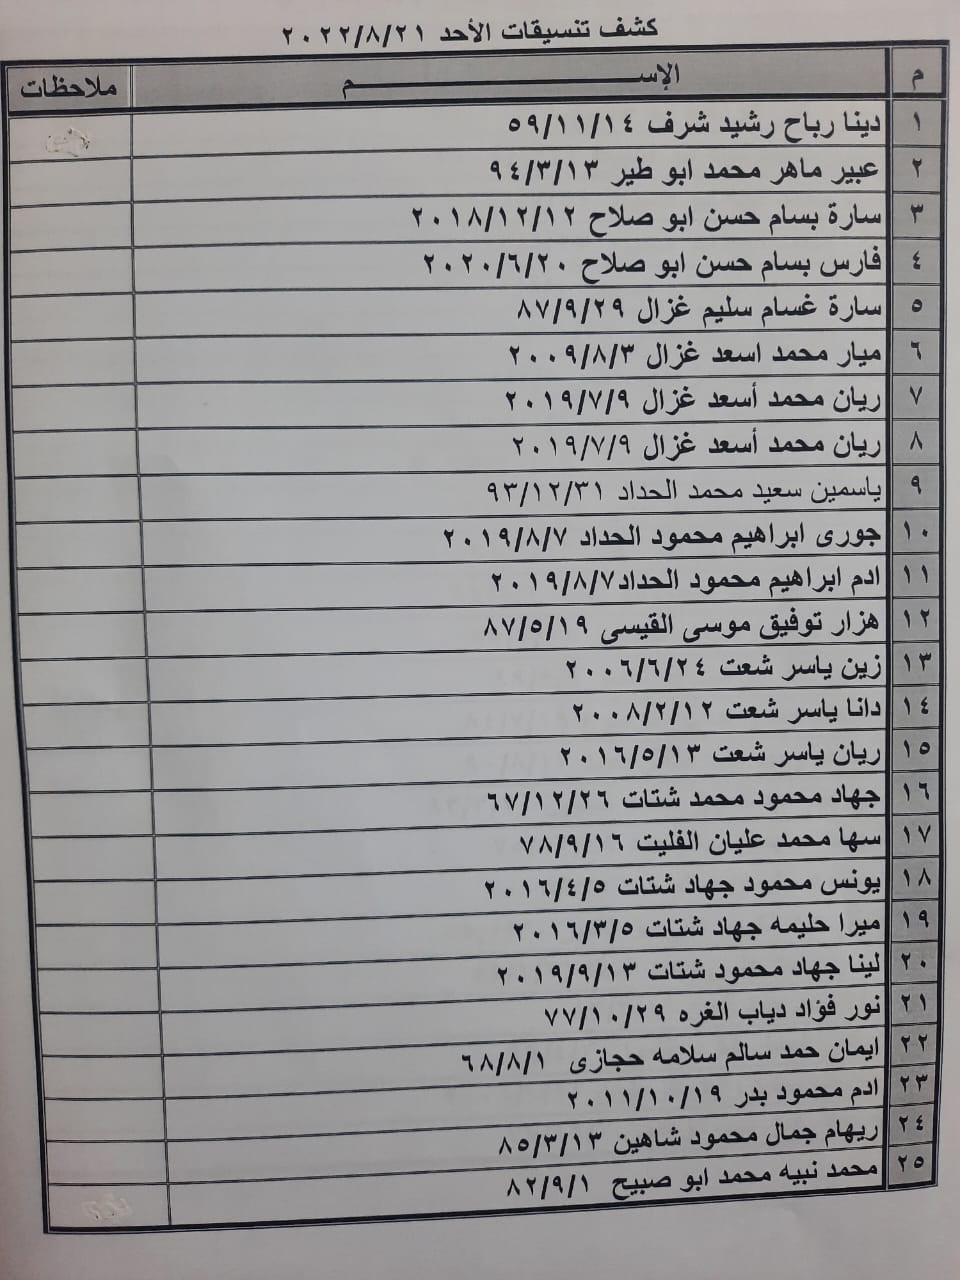 كشف تنسيقات الأحد ٢٠٢٢/٨/٢١
م الإســـــــم ملاحظات
١ دينا رباح رشيد شرف ٥٩/١١/١٤
٢ عبير ماهر محمد ابو طير ٩٤/٣/١٣
٣ سارة بسام حسن ابو صلاح ٢٠١٨/١٢/١٢
٤ فارس بسام حسن ابو صلاح ٢٠٢٠/٦/٢٠
٥ سارة غسام سليم غزال ٨٧/٩/٢٩
٦ ميار محمد اسعد غزال ٢٠٠٩/٨/٣
٧ ريان محمد أسعد غزال ٢٠١٩/٧/٩
٨ ريان محمد أسعد غزال ٢٠١٩/٧/٩
٩ ياسمين سعيد محمد الحداد ٩٣/١٢/٣١
١٠ جورى ابراهيم محمود الحداد ٢٠١٩/٨/٧
١١ ادم ابراهيم محمود الحداد٢٠١٩/٨/٧
١٢ هزار توفيق موسى القيسى ٨٧/٥/١٩
١٣ زين ياسر شعت ٢٠٠٦/٦/٢٤
١٤ دانا ياسر شعت ٢٠٠٨/٢/١٢
١٥ ريان ياسر شعت ٢٠١٦/٥/١٣
١٦ جهاد محمود محمد شتات ٦٧/١٢/٢٦
١٧ سها محمد عليان الفليت ٧٨/٩/١٦
١٨ يونس محمود جهاد شتات ٢٠١٦/٤/٥
١٩ ميرا حليمه جهاد شتات ٢٠١٦/٣/٥
٢٠ لينا جهاد محمود شتات ٢٠١٩/٩/١٣
٢١ نور فؤاد دياب الغره ٧٧/١٠/٢٩
٢٢ ايمان حمد سالم سلامه حجازى ٦٨/٨/١
٢٣ ادم محمود بدر ٢٠١١/١٠/١٩
٢٤ ريهام جمال محمود شاهين ٨٥/٣/١٣
٢٥ محمد نبيه محمد ابو صبيح ٨٢/٩/١